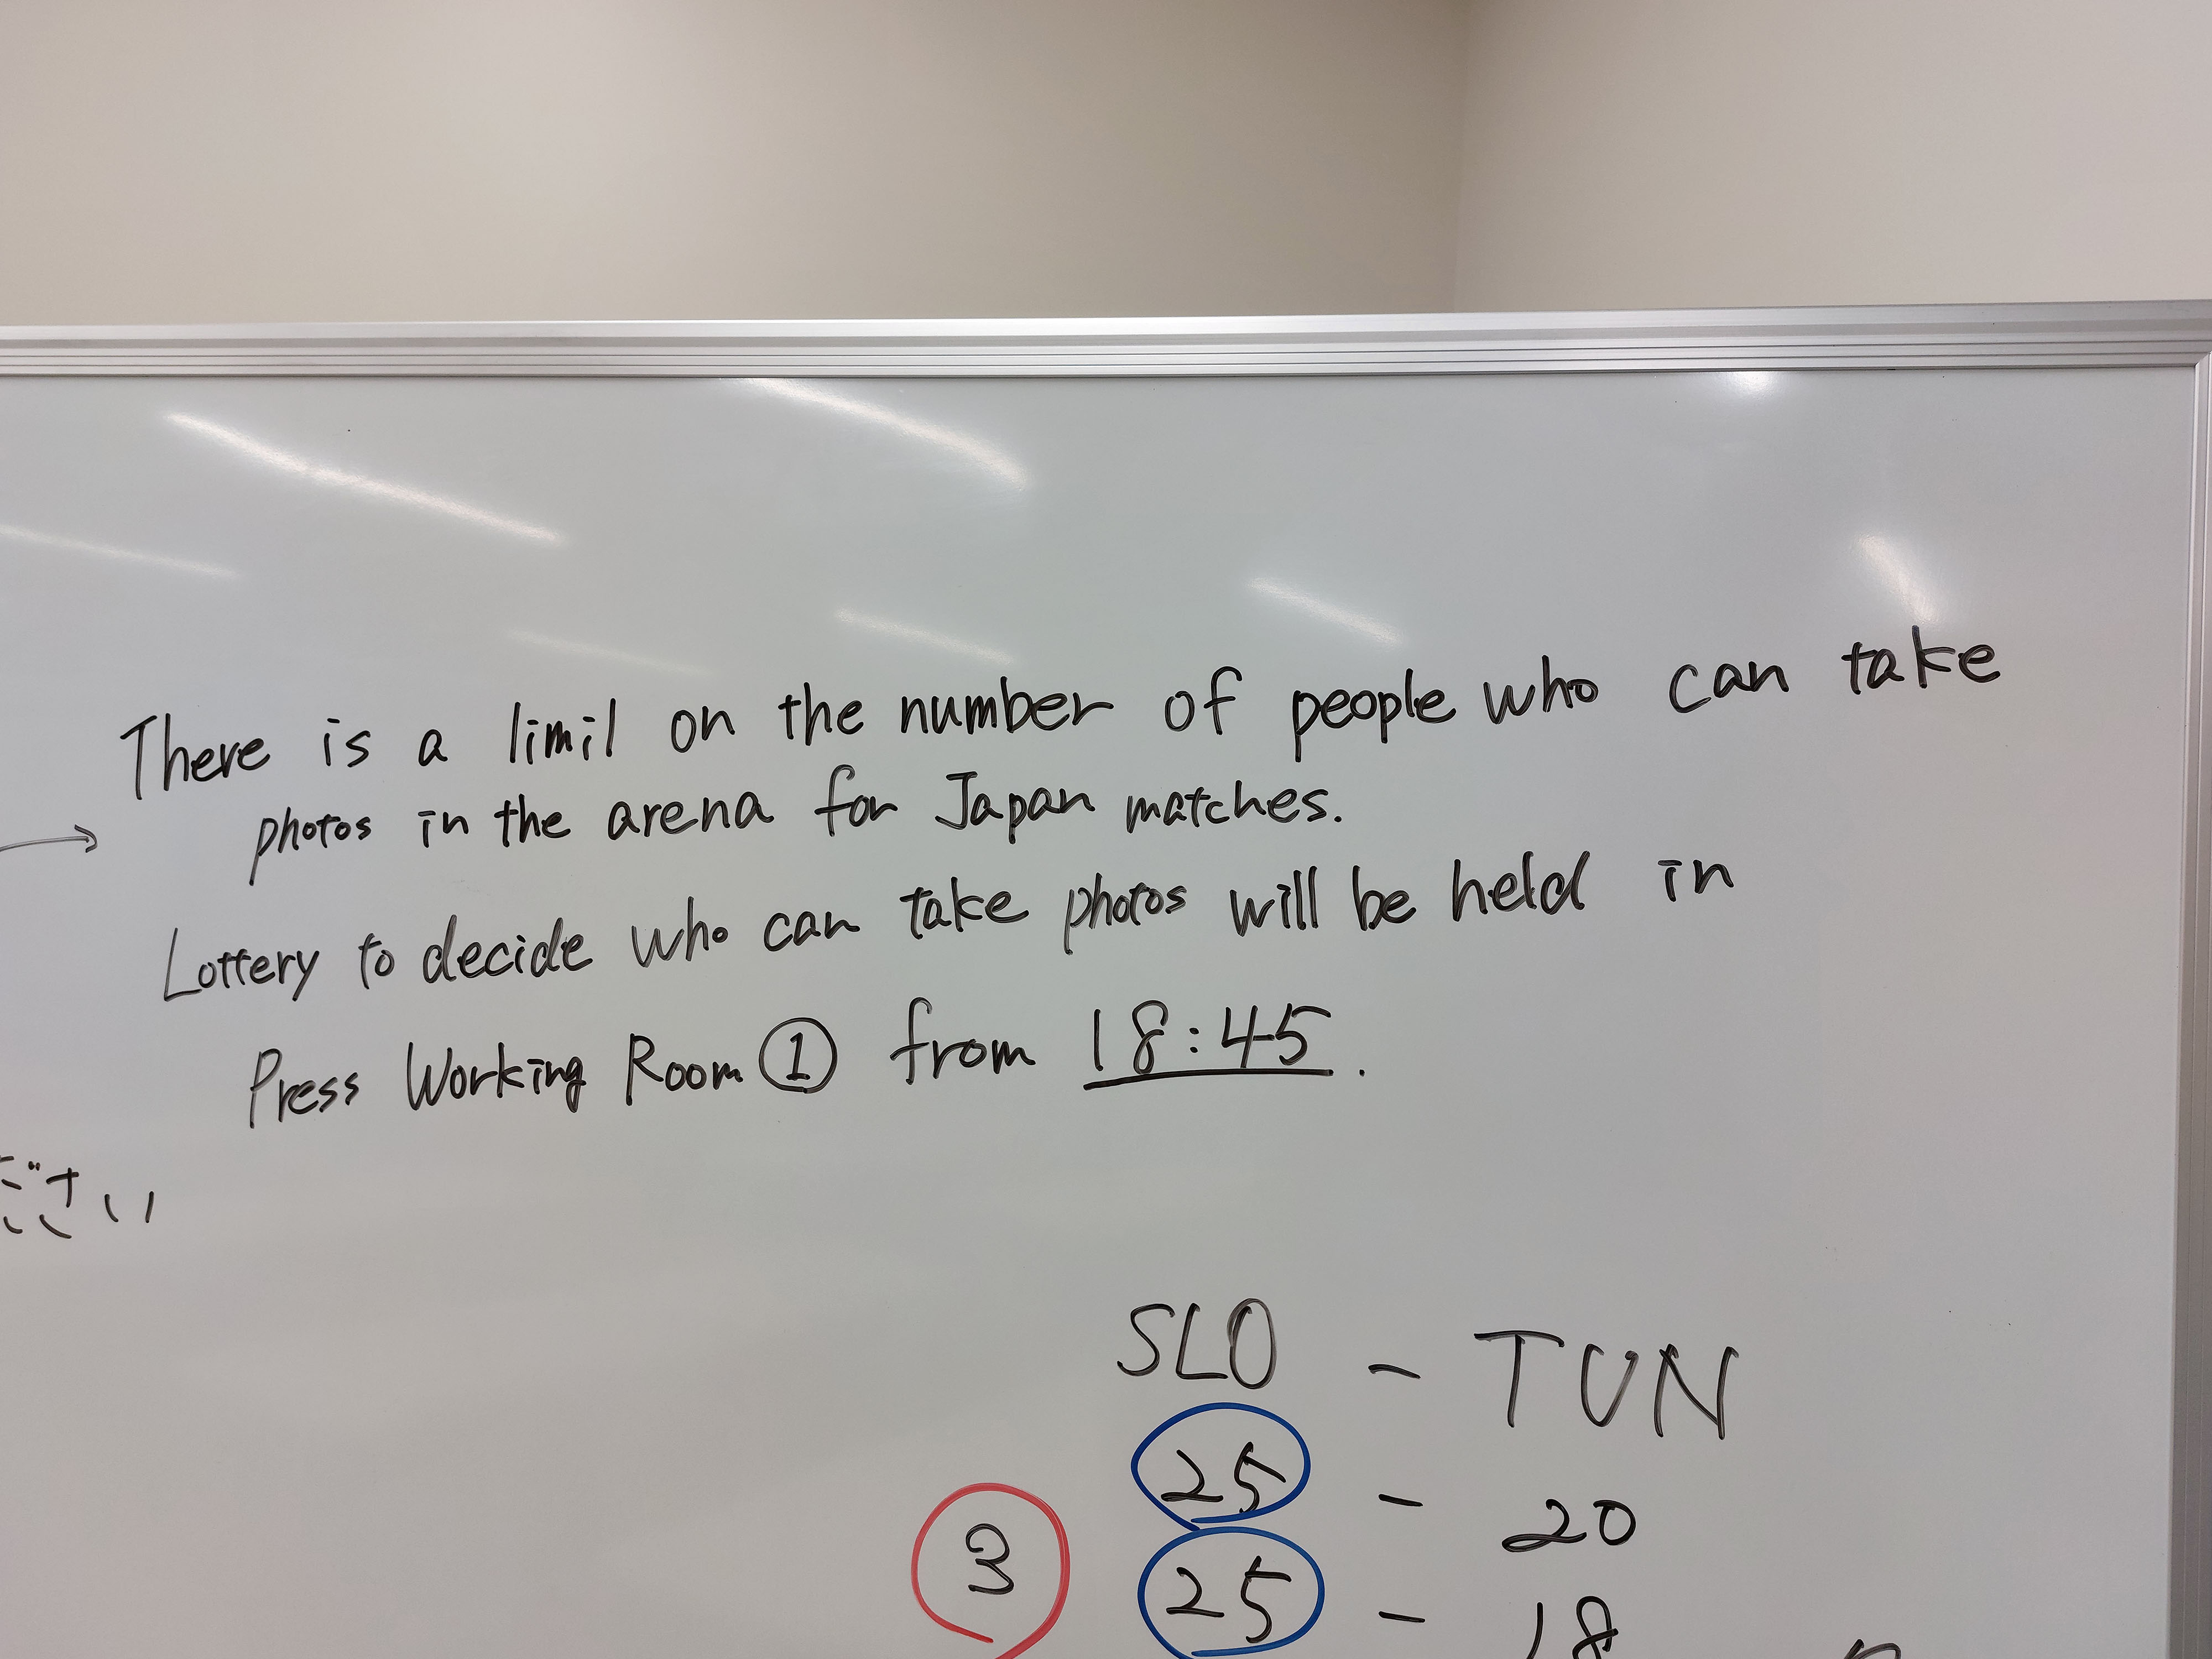 There is a limil on the number of people who can take
photos in the arena for Japan matches.
Lottery to decide who can take photos will be held in
Press Working Room ① from 18:45.
ださい
SLO - TUN
25 - 20
3
25 - 18